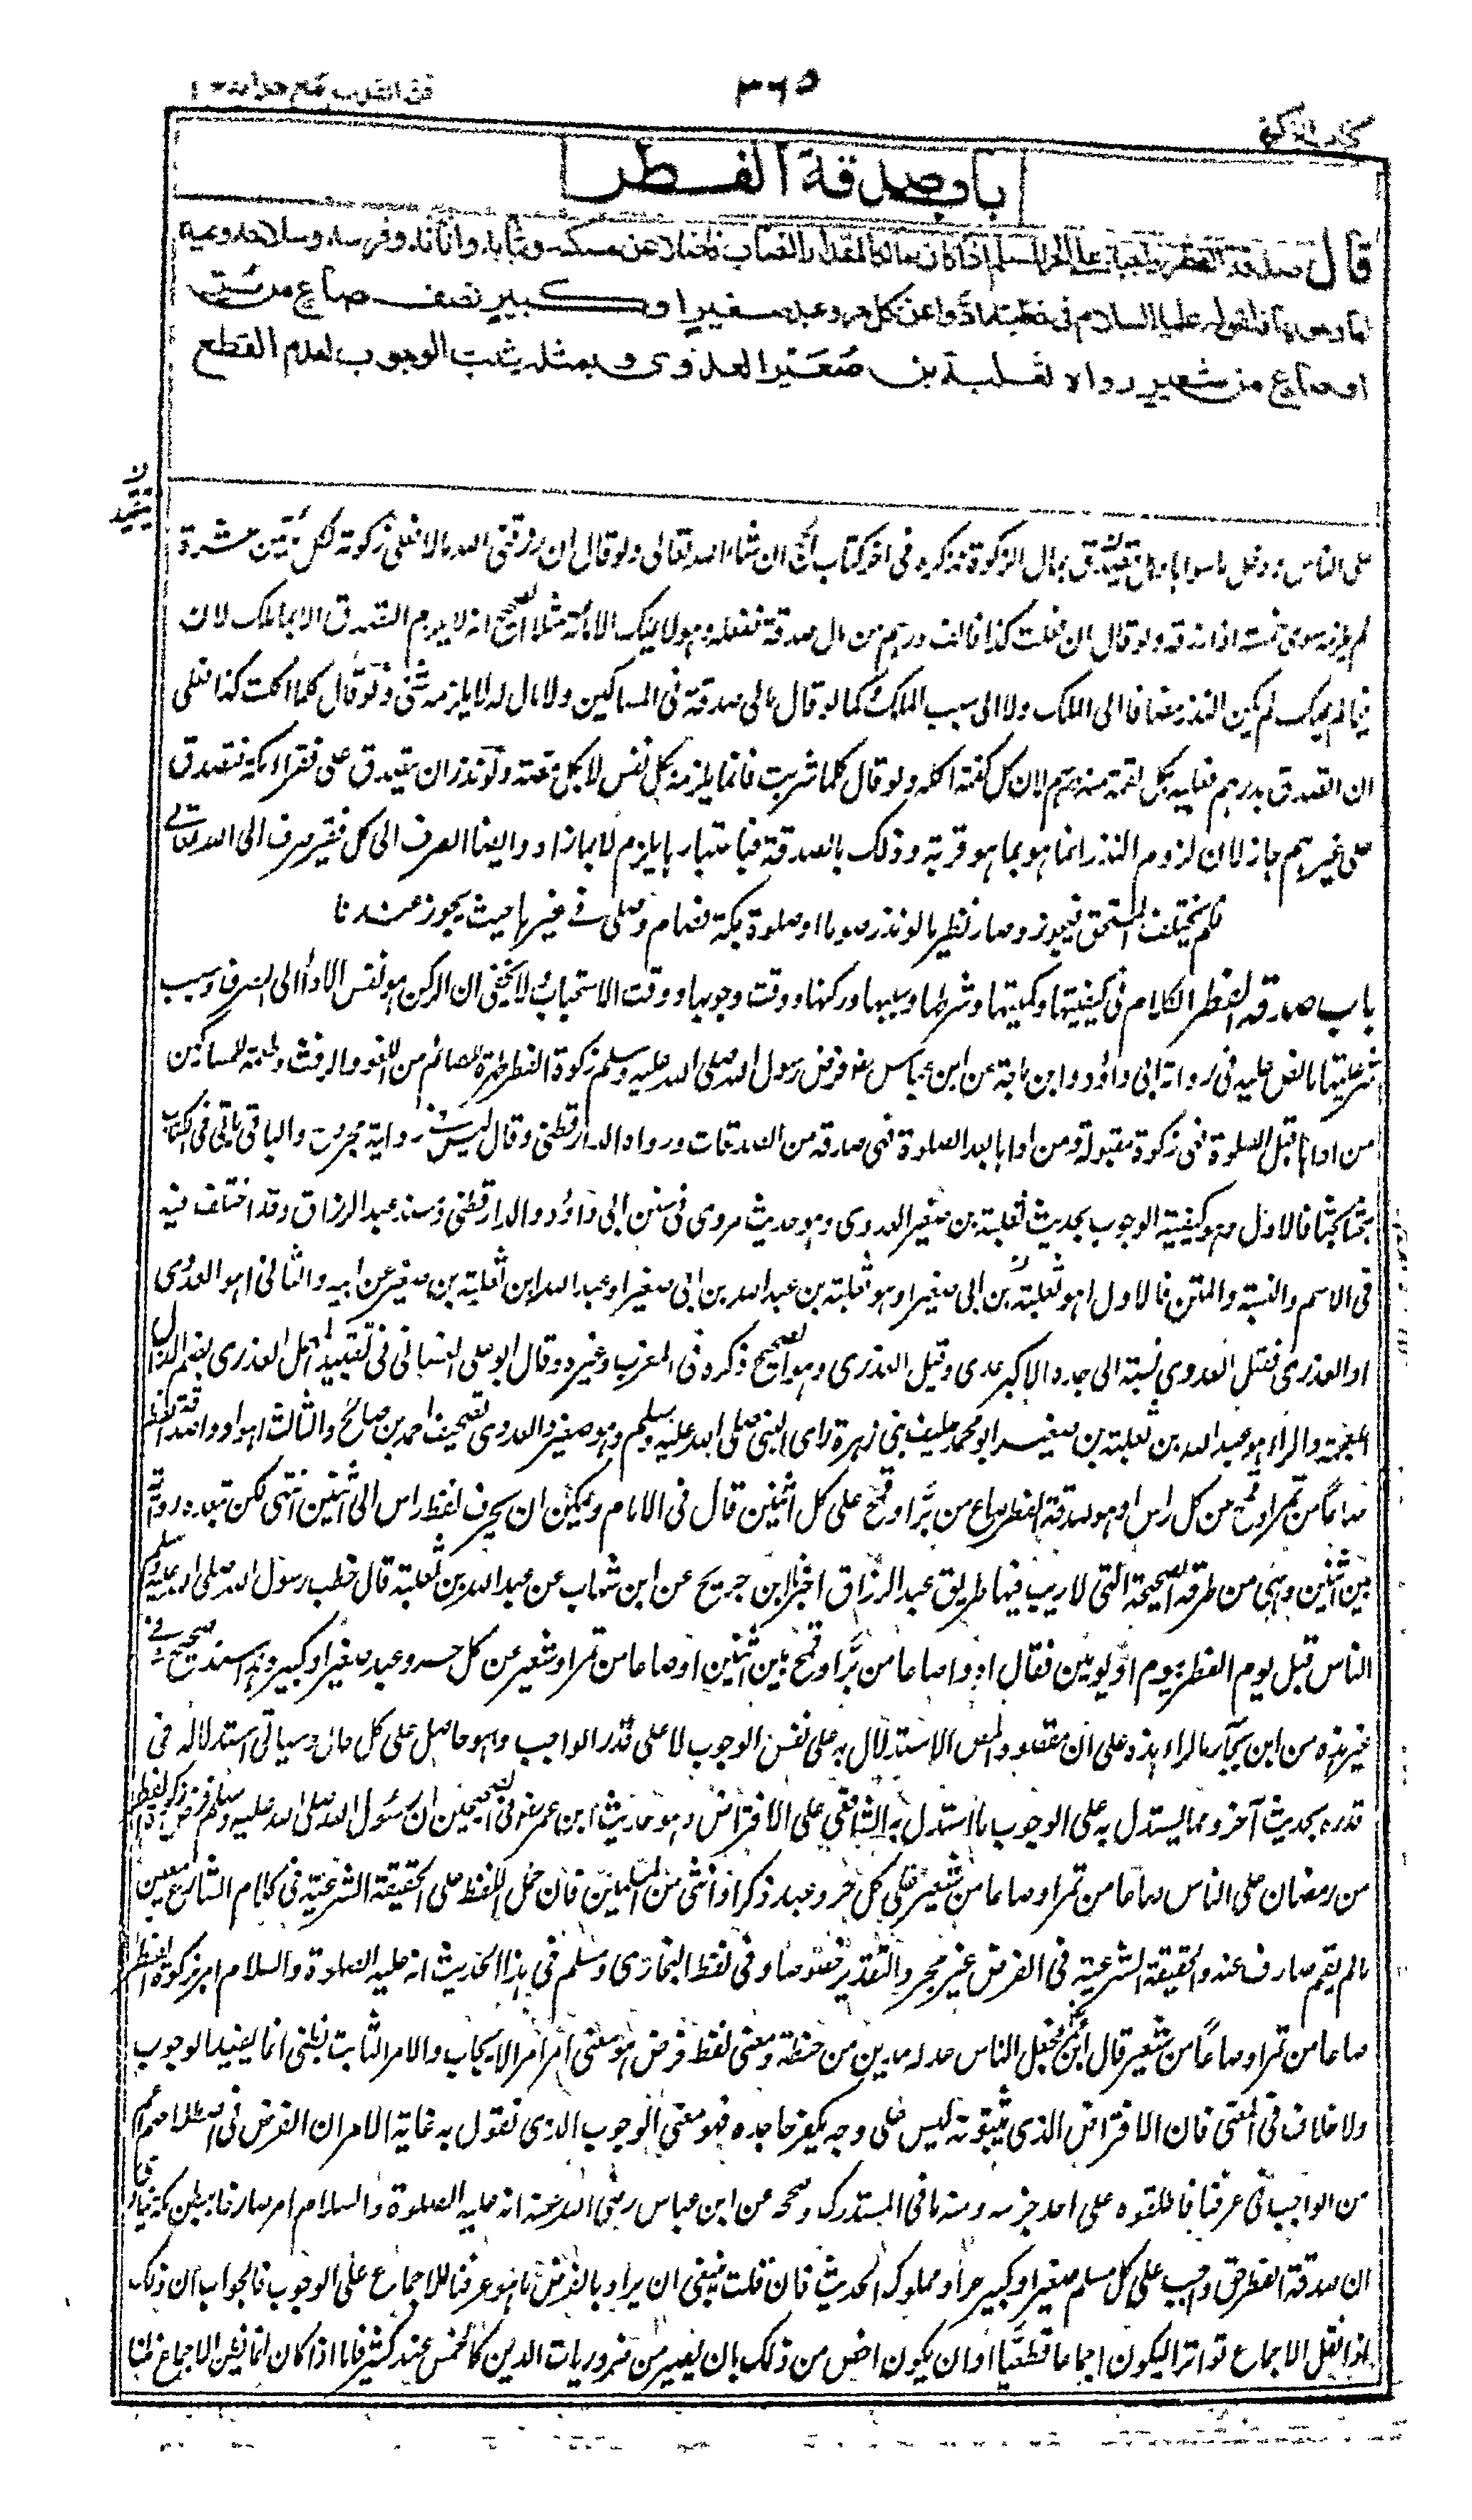 فتح القدير مع هداية ج ١
٣٦٥
كتاب الزكوة
باب صدقة الفطر
قال صدقة الفطر واجبة على الحر المسلم اذا كان مالكا لمقدار النصاب فاضلا عن مسكنه وثيابه واثاثه وفرسه وسلاحه وعبيده
اما وجوبها فلقوله عليه السلام في خطبته ادّوا عن كل حر وعبد صغير او كبير نصف صاع من بر
او صاع من شعير رواه ثعلبة بن صُعَير العدوى وبمثله يثبت الوجوب لعدم القطع
على الناس ودخل ما سواه بدليل يتصدق بمال الزكوة نذكره فى اخر كتاب الحج ان شاء الله تعالى ولو قال ان رزقنى الله مالا فعلى زكوته لكل مائتين عشرة
لم يلزمه سوى خمسة اذا رزقه ولو قال ان فعلت كذا فالف درهم من مال صدقة ففعله وهو لا يملك الا مائة مثلا الصحيح انه لا يلزم التصدق الا بما ملك لان
فيما لم يملك لم يكن النذر مضافا الى الملك ولا الى سبب الملك كما لو قال مالى صدقة فى المساكين ولا مال له لا يلزمه شئ ولو قال كلما اكلت كذا فعلى
ان اتصدق بدرهم فعليه بكل لقمة منه درهم لان كل لقمة اكلة ولو قال كلما شربت فانما يلزمه بكل نفس لا بكل مصة ولو نذر ان يتصدق على فقراء مكة فتصدق
على غيرهم جاز لان لزوم النذر انما هو بما هو قربة وذلك بالصدقة فباعتبارها يلزم لا بما زاد وايضا الصرف الى كل فقير صرف الى الله تعالى
فلم يختلف المستحق فيجوز وصار نظير ما لو نذر صوما او صلوة بمكة فصام وصلى فى غيرها حيث يجوز عندنا
باب صدقة الفطر الكلام فى كيفيتها وكميتها وشرطها وسببها وركنها ووقت وجوبها ووقت الاستحباب لا يخفى ان الركن هو نفس الاداء الى المصرف وسبب
شرعيتها ما نص عليه فى رواية ابى داؤد وابن ماجة عن ابن عباس رض فرض رسول الله صلى الله عليه وسلم زكوة الفطر طهرة للصائم من اللغو والرفث وطعمة للمساكين
من اداها قبل الصلوة فهى زكوة مقبولة ومن اداها بعد الصلوة فهى صدقة من الصدقات ورواه الدارقطنى وقال ليس فى رواية مجروح والباقى ياتى فى الكتاب
بحثا بحثا فالاول وهو كيفية الوجوب بحديث ثعلبة بن صعير العدوى وهو حديث مروى فى سنن ابى داؤد والدارقطنى ومسند عبد الرزاق وقد اختلف فيه
فى الاسم والنسبة والمتن فالاول اهو ثعلبة بن ابى صعير او هو ثعلبة بن عبد الله بن ابى صعير او عبد الله ابن ثعلبة بن صعير عن ابيه والثانى اهو العدوى
او العذرى فقيل العدوى نسبة الى جده الاكبر عدى وقيل العذرى وهو الصحيح ذكره فى المغرب وغيره وقال ابو على الغسانى فى تقييد المهمل العذرى بضم الذال
المعجمة والراء هو عبد الله بن ثعلبة بن صعير ابو محمد حليف بنى زهرة راى النبى صلى الله عليه وسلم وهو صغير والعدوى تصحيف احمد بن صالح والثالث اهو ادوا صدقة الفطر
صاعًا من تمر او قمح من كل راس او هو صدقة الفطر صاع من برّ او قمح على كل اثنين قال فى الامام ويمكن ان يحرف لفظ راس الى اثنين انتهى لكن تبعده رواية
بين اثنين وهى من طرقه الصحيحة التى لا ريب فيها طريق عبد الرزاق اخبرنا ابن جريج عن ابن شهاب عن عبد الله بن ثعلبة قال خطب رسول الله صلى الله عليه وسلم
الناس قبل يوم الفطر بيوم او يومين فقال ادوا صاعا من برّ او قمح بين اثنين او صاعا من تمر او شعير عن كل حر وعبد صغير او كبير وهذا سند صحيح وفى
غير هذه من اين يجاء بالراء هذه على ان مقصود المص الاستدلال به على نفس الوجوب لا على قدر الواجب وهو حاصل على كل حال وسياتى استدلاله فى
قدره بحديث آخر ومما يستدل به على الوجوب ما استدل به الشافعى على الافتراض وهو حديث ابن عمر رض فى الصحيحين ان رسول الله صلى الله عليه وسلم فرض زكوة الفطر
من رمضان على الناس صاعا من تمر او صاعا من شعير على كل حر وعبد ذكر او انثى من المسلمين فان حمل اللفظ على الحقيقة الشرعية فى كلام الشارع متعين
ما لم يقم صارف عنه والحقيقة الشرعية فى الفرض غير مجرد التقدير خصوصا وفى لفظ البخارى ومسلم فى هذا الحديث انه عليه الصلوة والسلام امر بزكوة الفطر
صاعا من تمر او صاعًا من شعير قال ابن عمر فجعل الناس عدله مدين من حنطة ومعنى لفظ فرض هو معنى امر امر الايجاب والامر الثابت بظنى انما يفيد الوجوب
ولا خلاف فى المعنى فان الافتراض الذى يثبتونه ليس على وجه يكفر جاحده فهو معنى الوجوب الذى نقول به غاية الامر ان الفرض فى اصطلاحهم اعم
من الواجب فى عرفنا فاطلقوه على احد جزءيه ومنه ما فى المستدرك وصححه عن ابن عباس رضى الله عنه انه عليه الصلوة والسلام امر صارخا ببطن مكة ينادى
ان صدقة الفطر حق واجب على كل مسلم صغير او كبير حر او مملوك الحديث فان قلت ينبغى ان يراد بالفرض ما هو عرفنا للاجماع على الوجوب فالجواب ان ذلك
اذا نقل الاجماع تواترا ليكون اجماعا قطعيًا او ان يكون اخص من ذلك بان يصير من ضروريات الدين كالخمس عند كثير فاما اذا كان انما يظن الاجماع ظنا